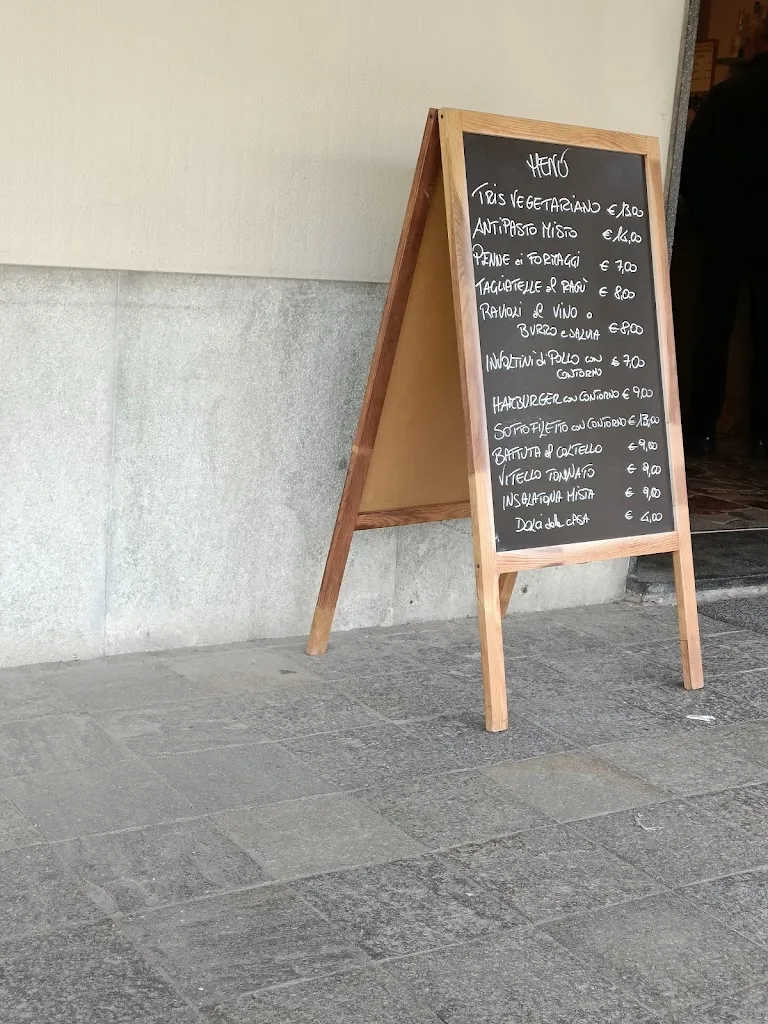 MENÚ
TRIS VEGETARIANO € 13,00
ANTIPASTO MISTO € 14,00
PENNE ai FORMAGGI € 7,00
TAGLIATELLE al RAGÙ € 8,00
RAVIOLI al VINO o
BURRO e SALVIA € 8,00
INVOLTINI di POLLO con € 7,00
CONTORNO
HAMBURGER con CONTORNO € 9,00
SOTTOFILETTO con CONTORNO € 13,00
BATTUTA al COLTELLO € 9,00
VITELLO TONNATO € 9,00
INSALATONA MISTA € 9,00
DOLCI della CASA € 4,00